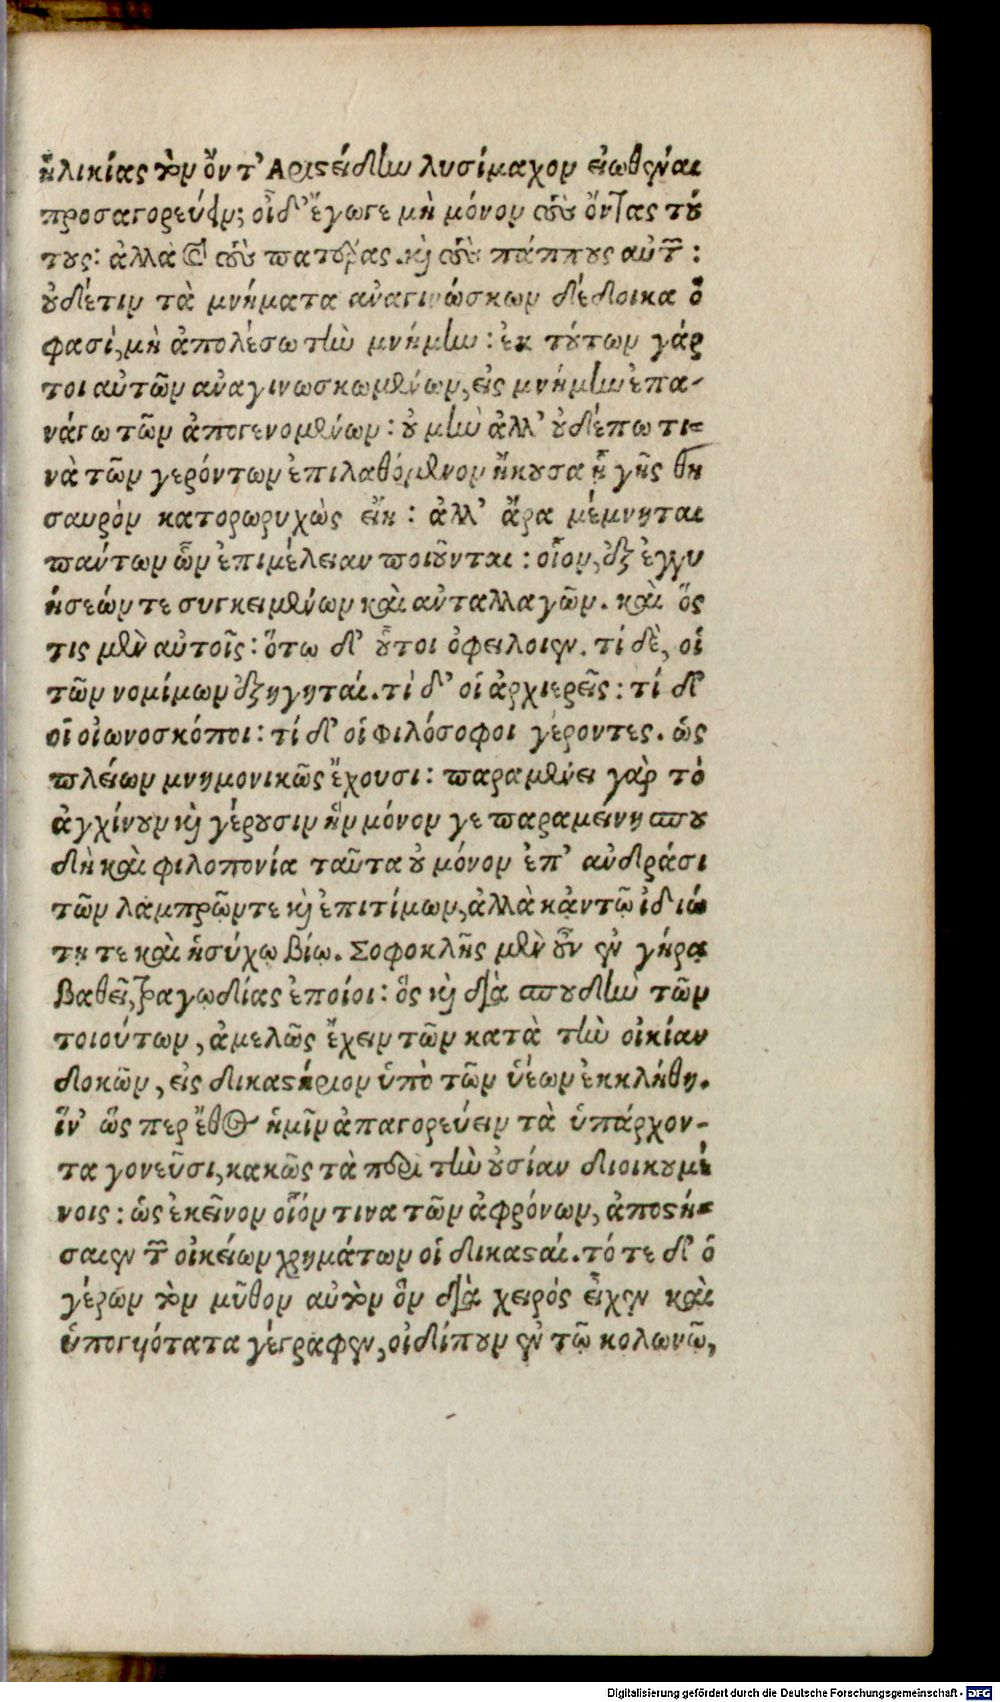 ἡλικίας τὸν ὄντ' Αριϛείδην λυσίμαχον εἰωθέναι
προσαγορεύειν; οἶδ' ἔγωγε μὴ μόνον τοὺς ὄντας τού
τους: ἀλλὰ καὶ τοὺς πατέρας. καὶ τοὺς πάππους αὐτῶν:
οὐδέτιν τὰ μνήματα αναγινώσκων δέδοικα ὅ
φασὶ, μὴ ἀπολέσω τὴν μνήμην: ἐκ τούτων γάρ
τοι αὐτῶν αναγινωσκωμένων, εἰς μνήμην ἐπα-
νάγω τῶν ἀπογενομένων: οὐ μὴν ἀλλ' οὐδέπω τι-
νὰ τῶν γερόντων ἐπιλαθόμενον ἤκουσα ᾗ γῆς θη
σαυρὸν κατορωρυχὼς εἴη: ἀλλ' ἄρα μέμνηται
παντων ὧν ἐπιμέλειαν ποιοῦνται: οἷον, ἐξ ἐγγυ
ήσεών τε συγκειμένων καὶ ανταλλαγῶν. καὶ ὅς
τις μὲν αὐτοῖς: ὅτῳ δ' οὗτοι ὀφειλοιεν. τί δὲ, οἱ
τῶν νομίμων ἐξηγηταί. τὶ δ' οἱ ἀρχιερεῖς: τί δ'
οἱ οἰωνοσκόποι: τί δ' οἱ φιλόσοφοι γέροντες. ὡς
πλείων μνημονικῶς ἔχουσι: παραμένει γὰρ τὸ
ἀγχίνουν καὶ γέρουσιν ἢν μόνον γε παραμείνη σπου
δὴ καὶ φιλοπονία ταῦτα οὐ μόνον ἐπ' ανδράσι
τῶν λαμπρῶν τε καὶ ἐπιτίμων, ἀλλὰ κἀν τῷ ἰδιώ
τῃ τε καὶ ἡσύχῳ βίῳ. Σοφοκλῆς μὲν οὖν ἐν γήρα
βαθεῖ, τραγῳδίας ἐποίοι: ὃς καὶ διὰ σπουδὴν τῶν
τοιούτων, ἀμελῶς ἔχειν τῶν κατὰ τὴν οἰκίαν
δοκῶν, εἰς δικαϛήριον ὑπὸ τῶν ὑέων ἐκκλήθη.
ἵν' ὥς περ ἔθος ἡμῖν ἀπαγορεύειν τὰ ὑπάρχον-
τα γονεῦσι, κακῶς τὰ περὶ τὴν οὐσίαν διοικουμέ
νοις: ὡς ἐκεῖνον οἷόν τινα τῶν ἀφρόνων, ἀποϛή-
σαιεν τῶν οἰκείων χρημάτων οἱ δικαϛαί. τότε δ' ὁ
γέρων τὸν μῦθον αὐτὸν ὃν διὰ χειρός εἶχεν καὶ
ὑπογυιότατα γέγραφεν, οἰδίπουν ἐν τῷ κολωνῷ,
Digitalisierung gefördert durch die Deutsche Forschungsgemeinschaft - DFG